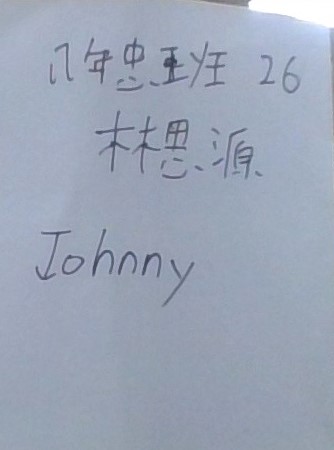 八年忠班 26
林思源
Johnny